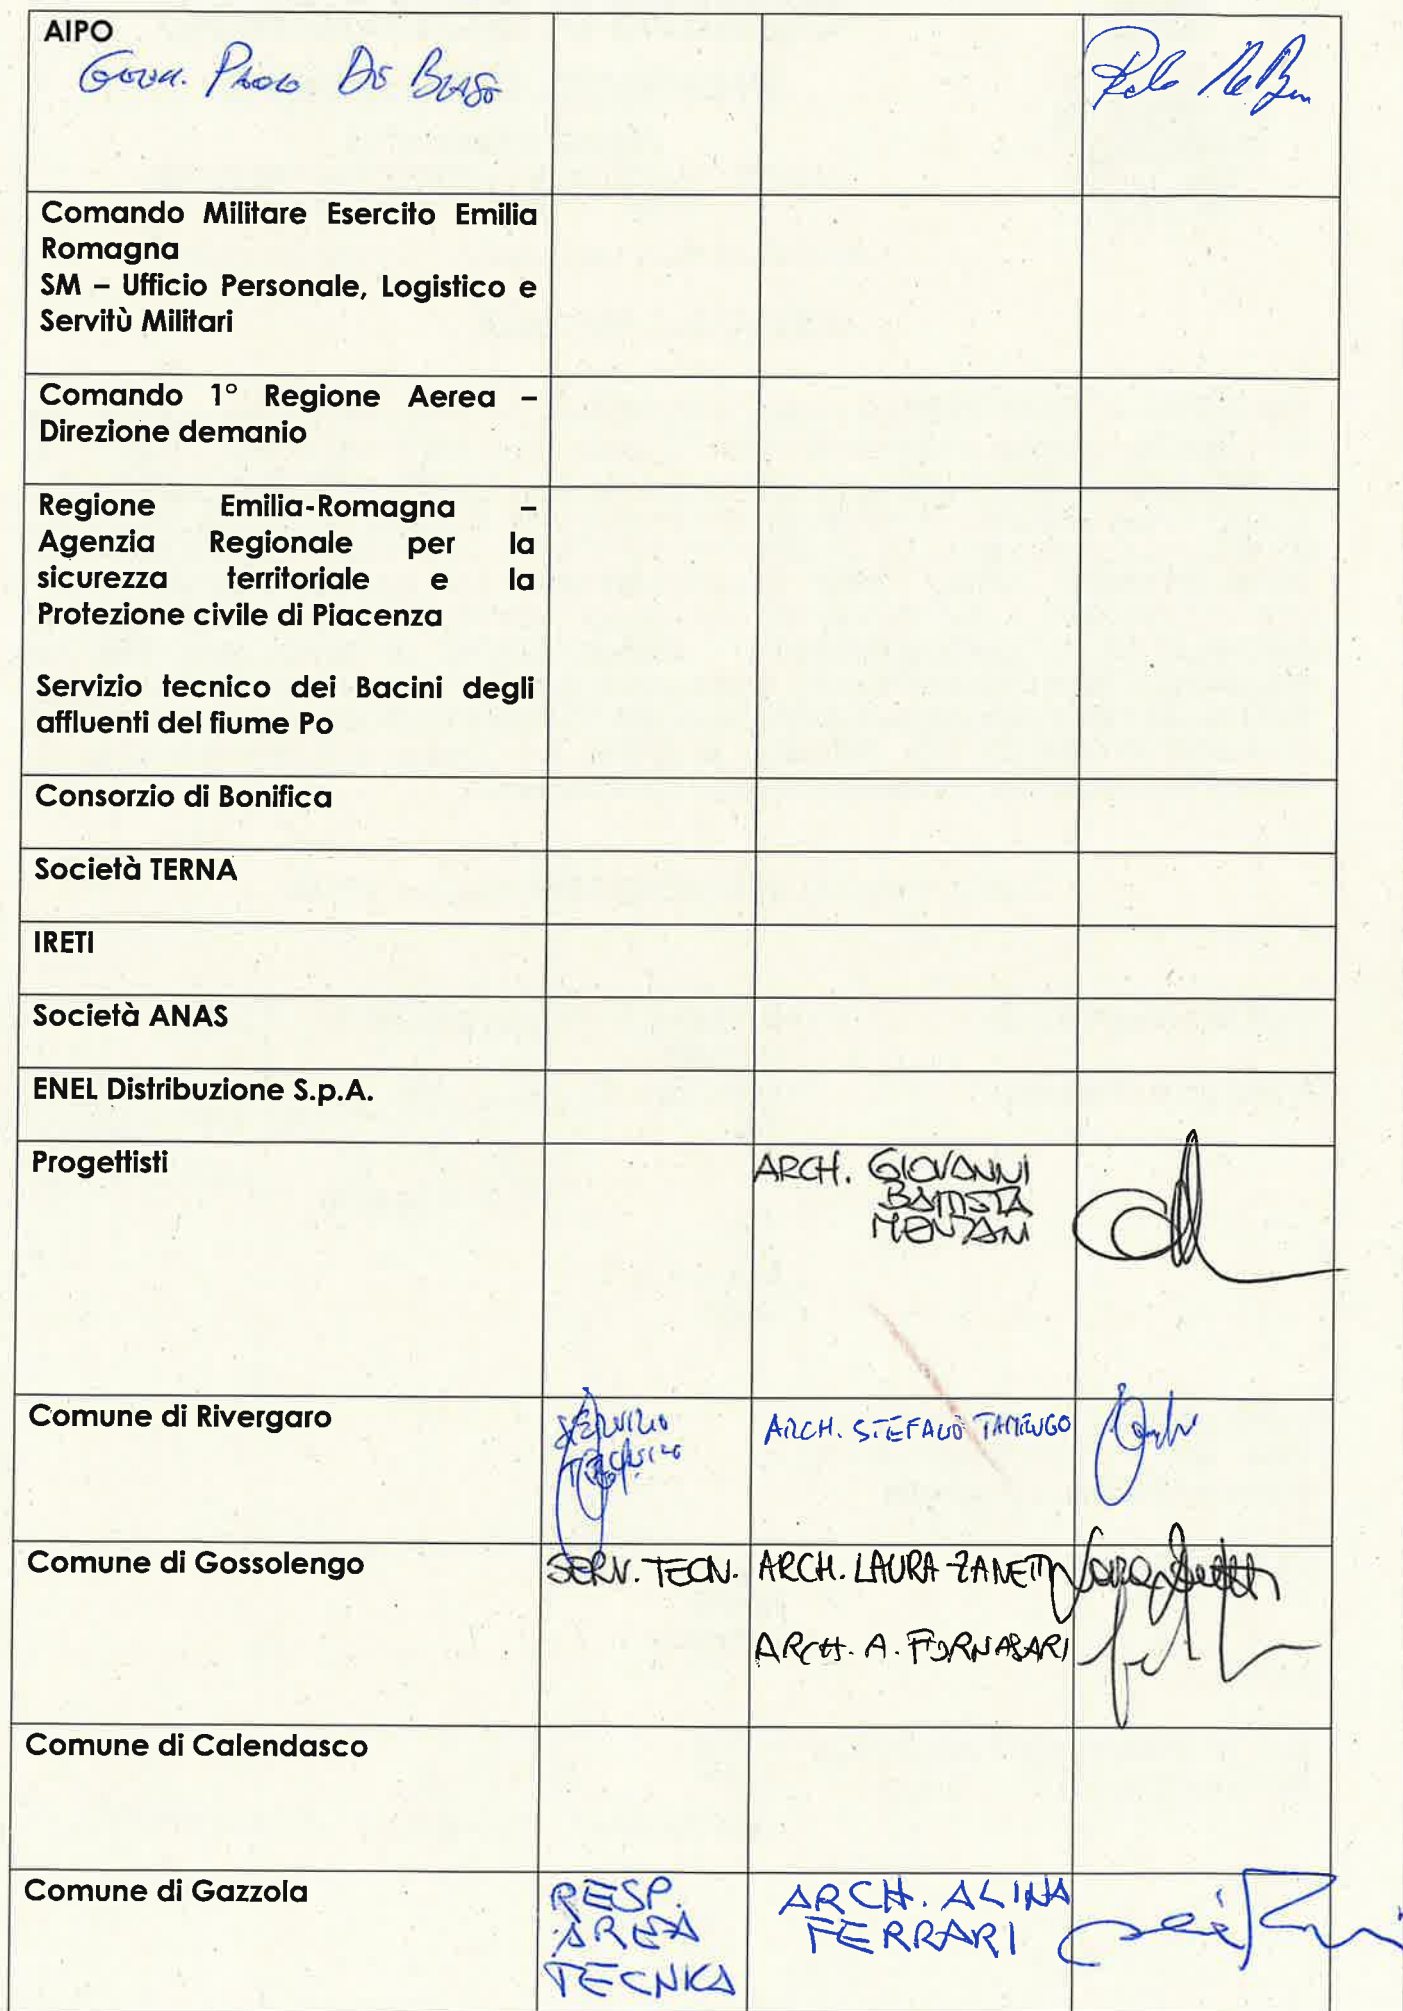 AIPO
GEOM. PAOLO DE BIASO
Comando Militare Esercito Emilia
Romagna
SM – Ufficio Personale, Logistico e
Servitù Militari
Comando 1° Regione Aerea –
Direzione demanio
Regione Emilia-Romagna –
Agenzia Regionale per la
sicurezza territoriale e la
Protezione civile di Piacenza
Servizio tecnico dei Bacini degli
affluenti del fiume Po
Consorzio di Bonifica
Società TERNA
IRETI
Società ANAS
ENEL Distribuzione S.p.A.
Progettisti
ARCH. GIOVANNI
BATTISTA
MENZANI
Comune di Rivergaro
SERVIZIO
TECNICO
ARCH. STEFANO
Comune di Gossolengo
SERV. TECN.
ARCH. LAURA ZANETTI
ARCH. A. FORNASARI
Comune di Calendasco
Comune di Gazzola
RESP.
AREA
TECNICA
ARCH. ALINA
FERRARI